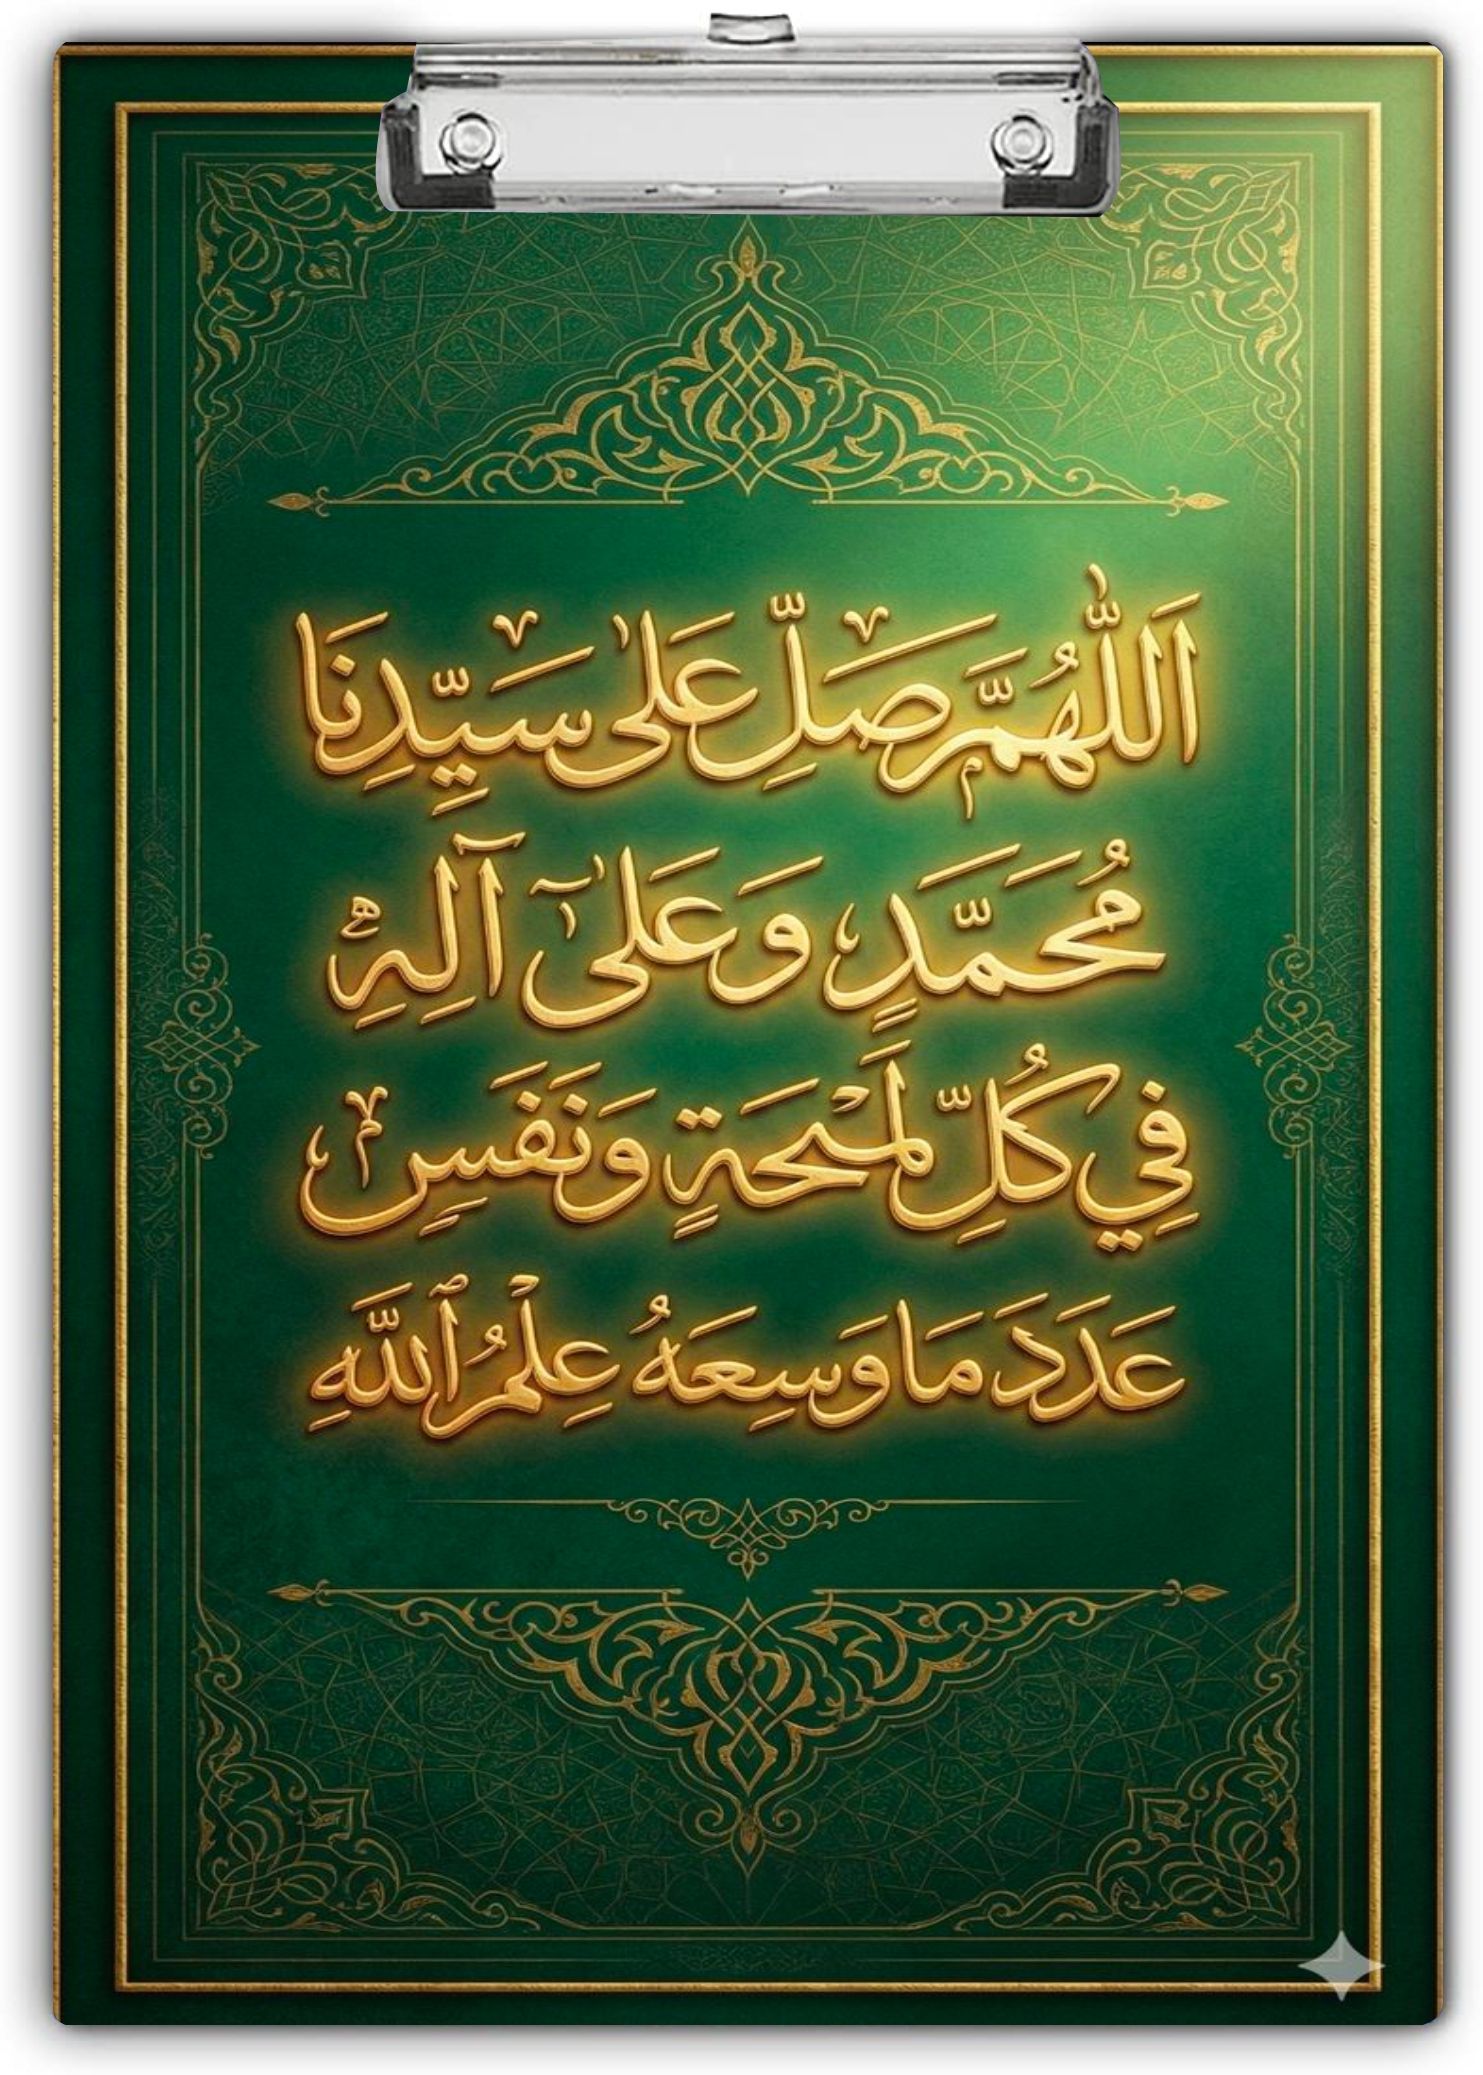 اَللّٰهُمَّ صَلِّ عَلٰى سَيِّدِنَا
مُحَمَّدٍ وَعَلٰٓى آلِهٖ
فِي كُلِّ لَمْحَةٍ وَنَفَسٍ
عَدَدَ مَا وَسِعَهُ عِلْمُ ٱللَّهِ